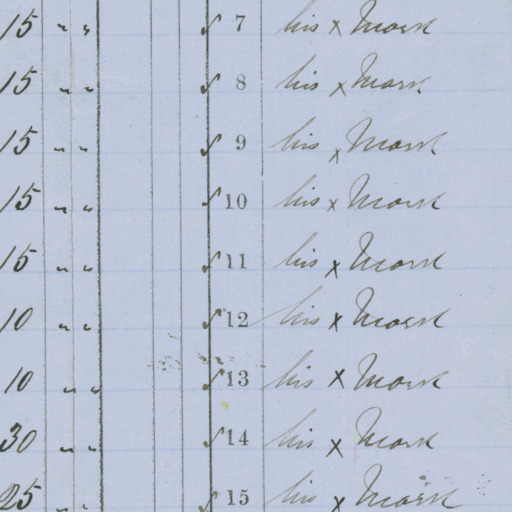 15 " " 7 his x Mark
15 " " 8 his x Mark
15 " " 9 his x Mark
15 " " 10 his x Mark
15 " " 11 his x Mark
10 " " 12 his x Mark
10 " " 13 his x Mark
30 " " 14 his x Mark
25 " " 15 his x Mark